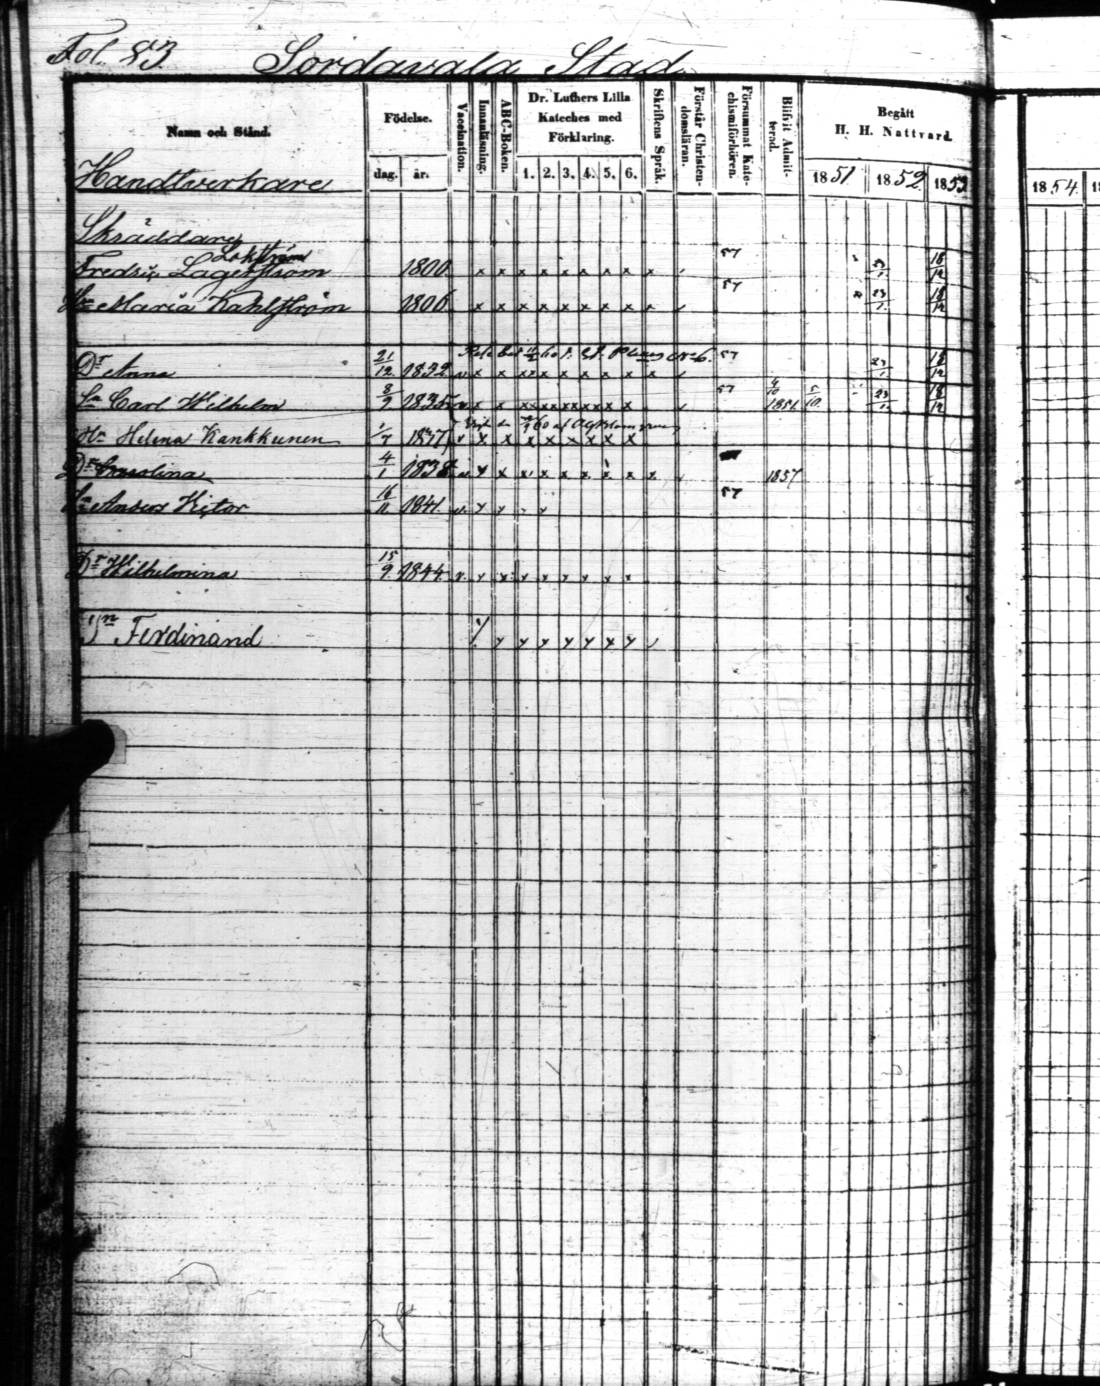 Fol. 83 Sordavala Stad
Namn och Stånd.
Födelse.
dag. år.
Vaccination.
Innanläsning.
ABC-Boken.
Dr. Luthers Lilla
Kateches med
Förklaring.
1. 2. 3. 4. 5. 6.
Skriftens Språk.
Förstår Christen-
domsläran.
Försummat Kate-
chismiförhören.
Blifvit Admit-
terad.
Begått
H. H. Nattvard.
1851. 1852. 1853
1854.
Handtverkare
Skräddare
Lokström
Lagerström 1800. x x x x x x x x x 57 23/1. 18/12
Maria Kahlström 1806. x x x x x x x x x 57 23/1. 18/12
Dr Anna 21/12 1832 v x x x x x x x x x 57 23/1. 18/12
Sn Carl Wilhelm 8/9 1835 v x x x x x x x x 57 4/10 1851. 5/10. 23/1. 18/12
Hu Helena Kankkunen 1/7 1837 v x x x x x x x x
Dr Carolina 4/1 1838 v x x x x x x x x x 1857
Sn Anders 16/11 1841. v. 57
Dr Wilhelmina 15/9 1844 v x x x x x x x x
Sn Ferdinand